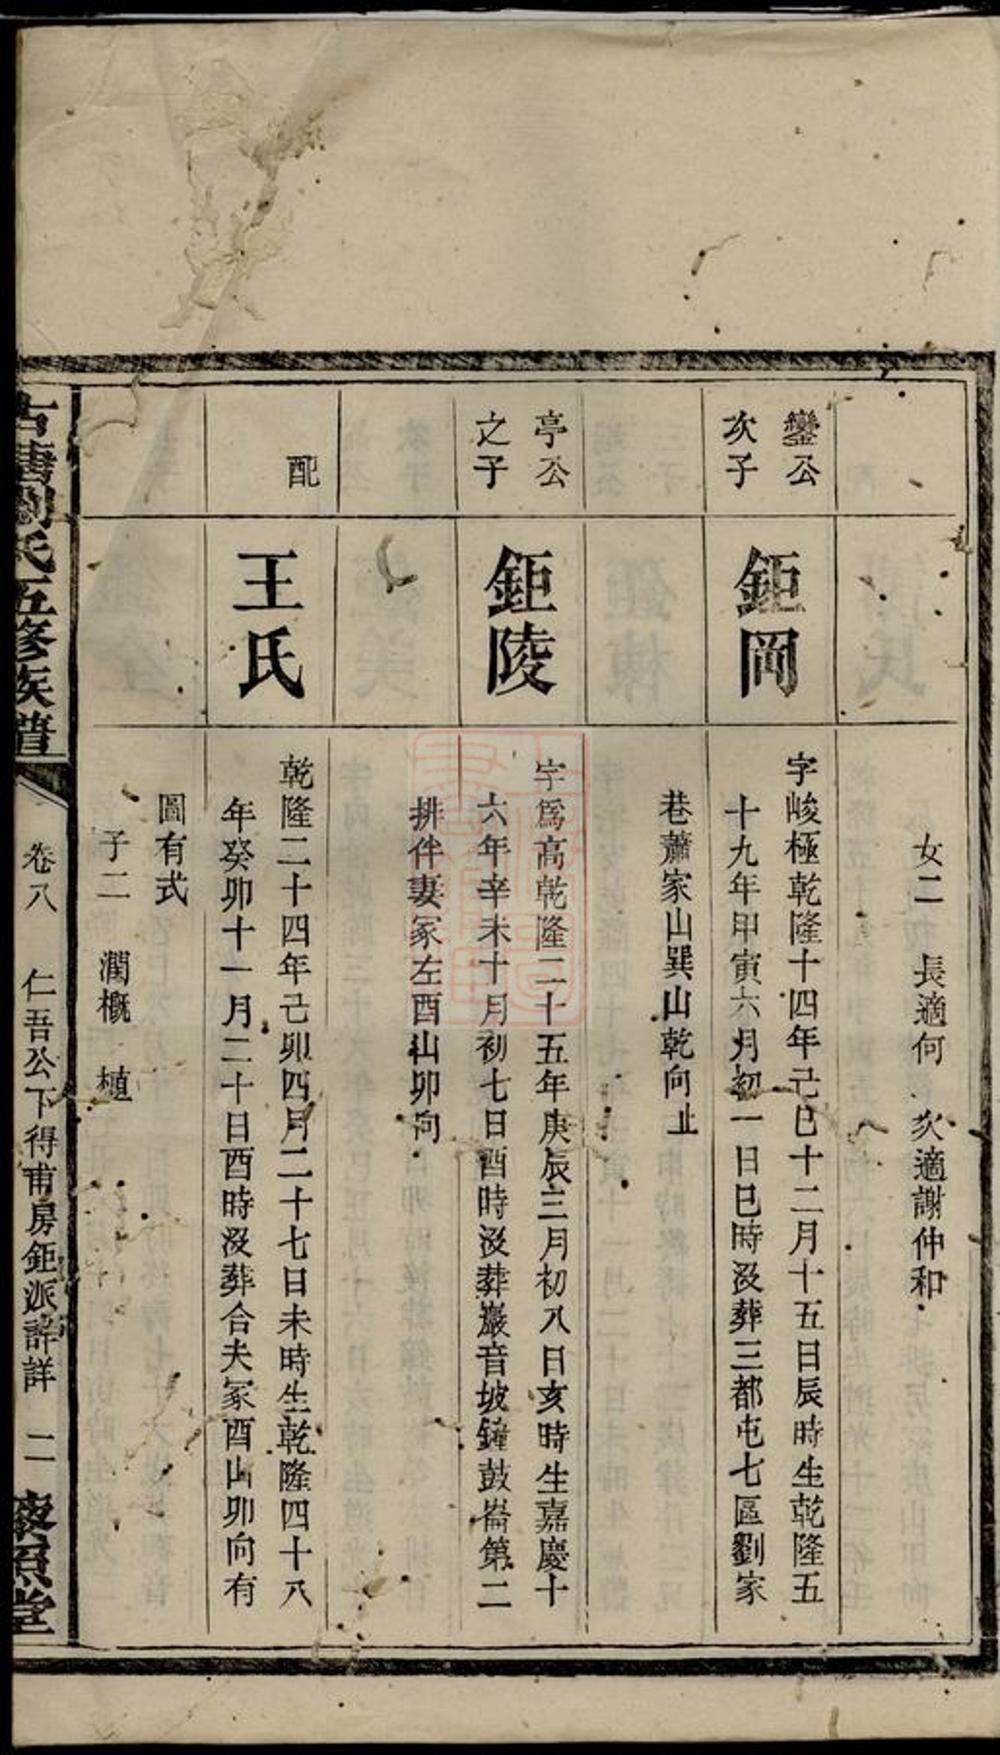 女二　長適何　次適謝仲和
鑾公
次子
鉅岡
字峻極乾隆十四年己巳十二月十五日辰時生乾隆五
十九年甲寅六月初一日巳時沒葬三都屯七區劉家
巷蕭家山巽山乾向止
亭公
之子
鉅陵
字爲高乾隆二十五年庚辰三月初八日亥時生嘉慶十
六年辛未十月初七日酉時沒葬巖音坡鐘鼓崙第二
排伴妻冢左酉山卯向
配
王氏
乾隆二十四年己卯四月二十七日未時生乾隆四十八
年癸卯十一月二十日酉時沒葬合夫冢酉山卯向有
圖有式
子二　潤概　植
古唐劉氏五修族譜
卷八　仁吾公下得甫房鉅派詳　二
照堂